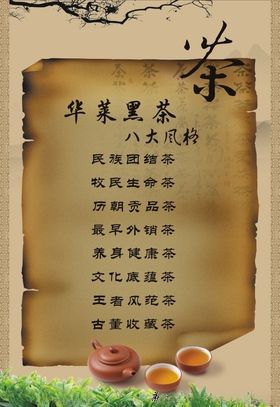 茶
华莱黑茶
八大风格
民族团结茶
牧民生命茶
历朝贡品茶
最早外销茶
养身健康茶
文化底蕴茶
王者风范茶
古董收藏茶